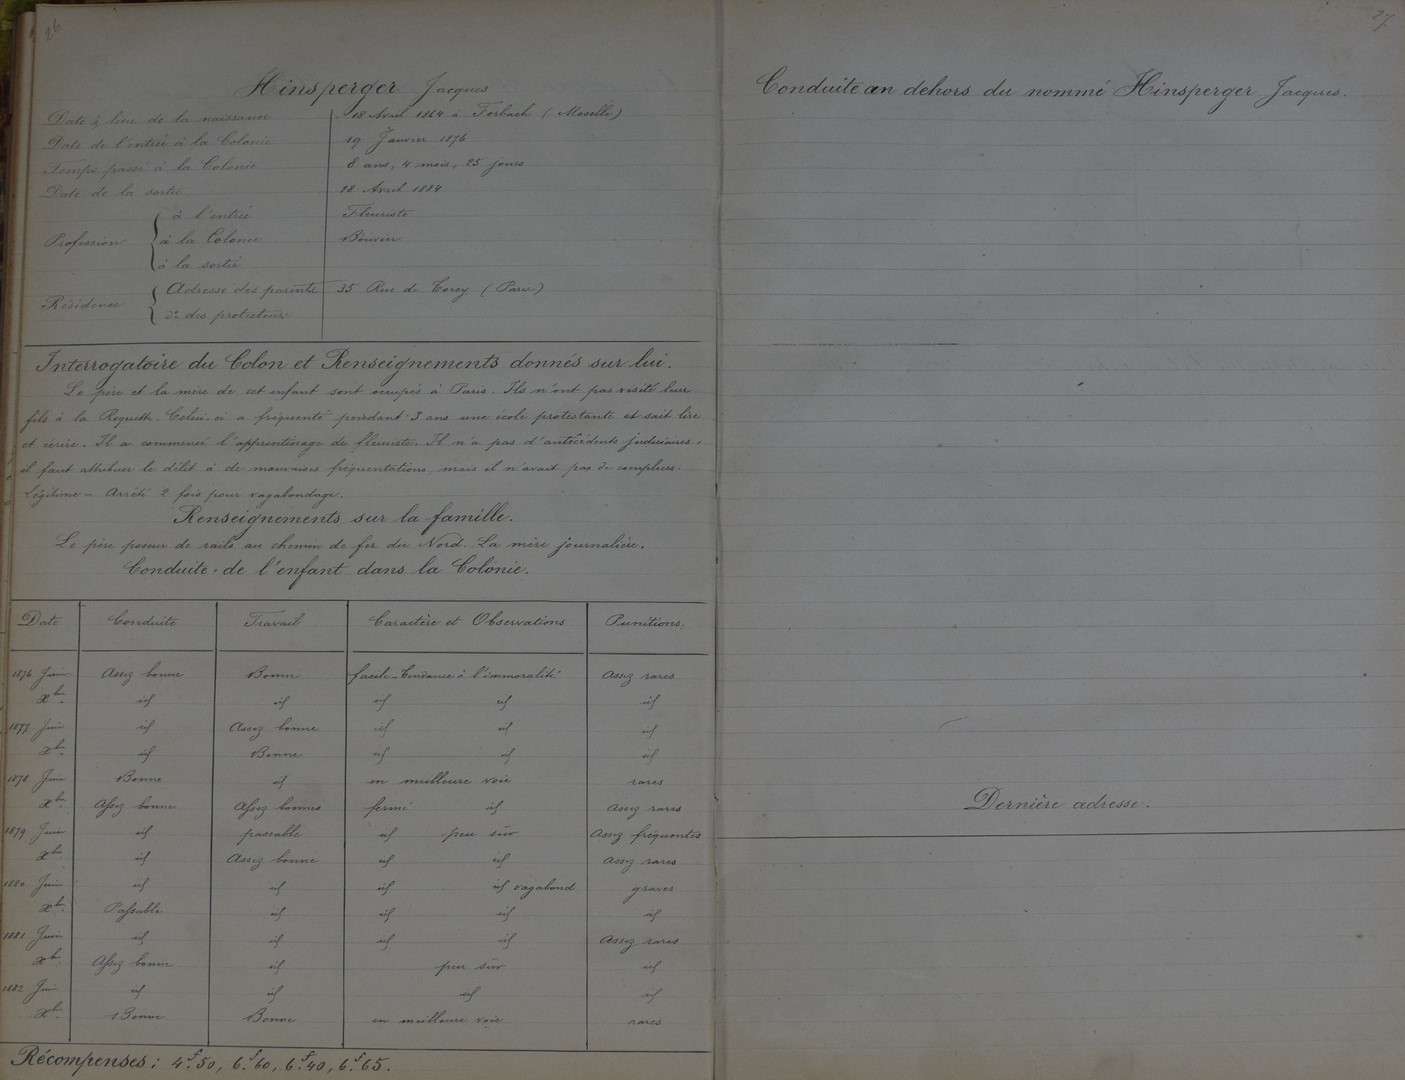 26
Hinsperger Jacques
Date & lieu de la naissance 18 Avril 1864 à Forbach (Moselle)
Date de l'entrée à la Colonie 19 Janvier 1876
Temps passé à la Colonie 8 ans, 4 mois, 25 jours
Date de la sortie 18 Avril 1884
Profession
à l'entrée Fleuriste
à la Colonie Bouvier
à la sortie
Résidence
Adresse des parents 35 Rue de Torcy (Paris)
do des protecteurs
Interrogatoire du Colon et Renseignements donnés sur lui.
Le père et la mère de cet enfant sont occupés à Paris. Ils n'ont pas visité leur
fils à la Roquette. Celui-ci a fréquenté pendant 3 ans une école protestante et sait lire
et écrire. Il a commencé l'apprentissage de fleuriste. Il n'a pas d'antécédents judiciaires,
il faut attribuer le délit à de mauvaises fréquentations, mais il n'avait pas de complices.
Légitime - Arrêté 2 fois pour vagabondage.
Renseignements sur la famille.
Le père poseur de rails au chemin de fer du Nord. La mère journalière.
Conduite de l'enfant dans la Colonie.
Date Conduite Travail Caractère et Observations Punitions.
1876 Juin Assez bonne Bonne facile - Tendance à l'immoralité Assez rares
Xbre id id id id id
1877 Juin id Assez bonne id id id
Xbre id Bonne id id id
1878 Juin Bonne id en meilleure voie rares
Xbre Assez bonne Assez bonnes fermé id Assez rares
1879 Juin id passable id peu sûr Assez fréquentes
Xbre id Assez bonne id id Assez rares
1880 Juin id id id id vagabond graves
Xbre Passable id id id id
1881 Juin id id id id Assez rares
Xbre Assez bonne id peu sûr id
1882 Juin id id id id
Xbre Bonne Bonne en meilleure voie rares
Récompenses : 4f.50, 6f.60, 6f.40, 6f.65.
27
Conduite en dehors du nommé Hinsperger Jacques.
Dernière adresse.